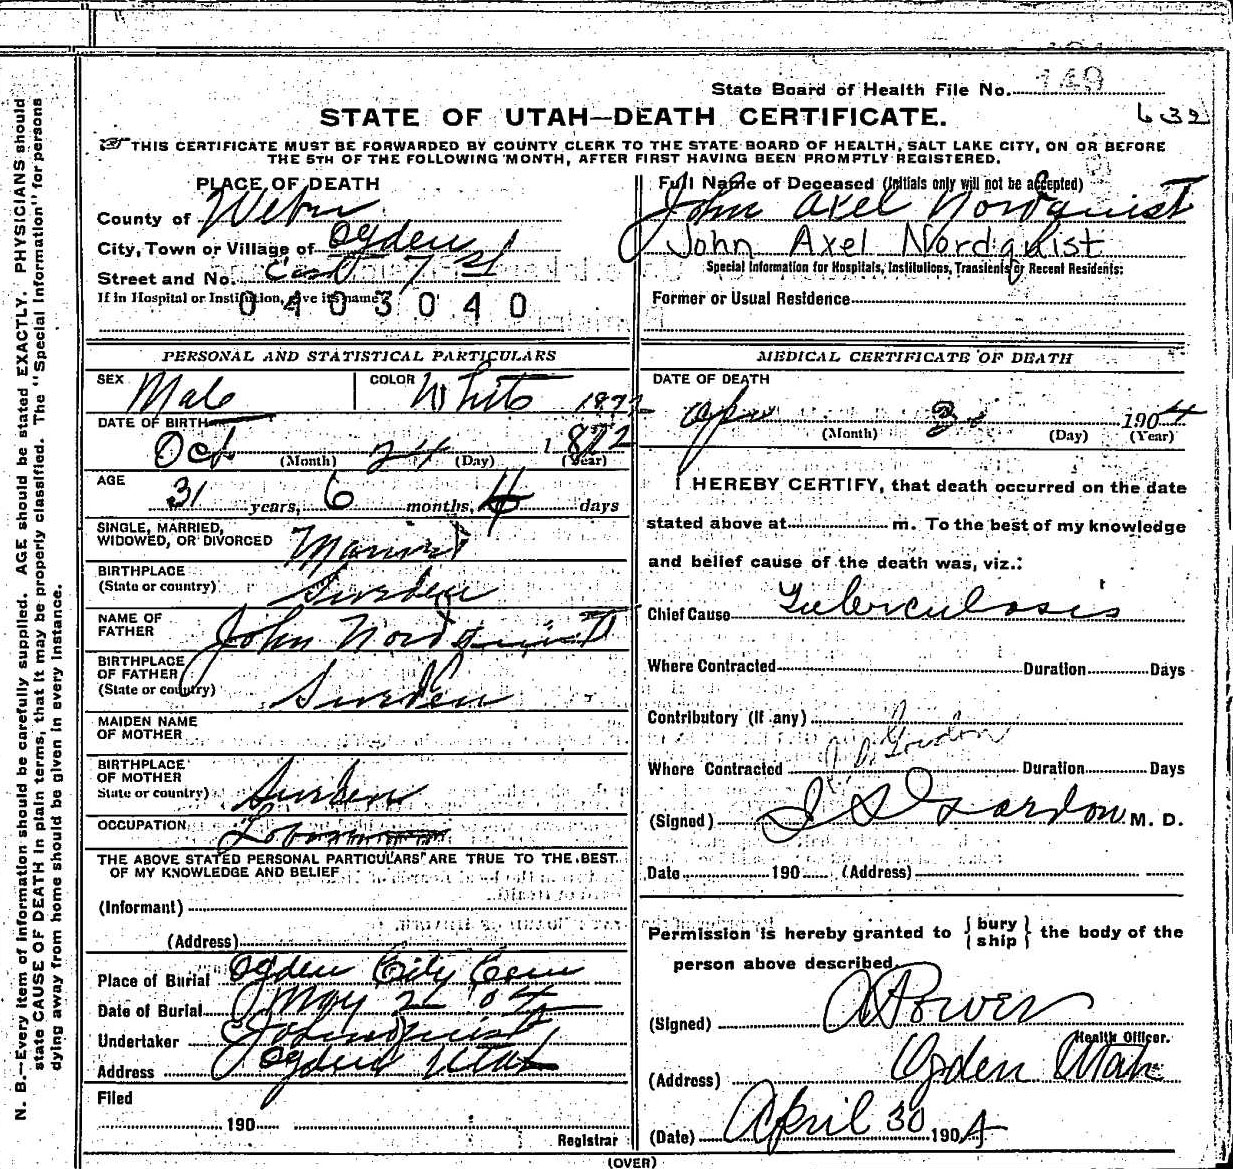 State Board of Health File No. 149
632
STATE OF UTAH—DEATH CERTIFICATE.
THIS CERTIFICATE MUST BE FORWARDED BY COUNTY CLERK TO THE STATE BOARD OF HEALTH, SALT LAKE CITY, ON OR BEFORE
THE 5TH OF THE FOLLOWING MONTH, AFTER FIRST HAVING BEEN PROMPTLY REGISTERED.
PLACE OF DEATH
County of Weber
City, Town or Village of Ogden
Street and No. East 7 St
If in Hospital or Institution, give its name
0403040
Full Name of Deceased (Initials only will not be accepted)
John Axel Nordquist
John Axel Nordquist
Special Information for Hospitals, Institutions, Transients or Recent Residents:
Former or Usual Residence
PERSONAL AND STATISTICAL PARTICULARS
SEX Male COLOR White
1872
DATE OF BIRTH
Oct 24 1872
(Month) (Day) (Year)
AGE
31 years, 6 months, 4 days
SINGLE, MARRIED,
WIDOWED, OR DIVORCED Married
BIRTHPLACE
(State or country) Sweden
NAME OF
FATHER John Nordquist
BIRTHPLACE
OF FATHER
(State or country) Sweden
MAIDEN NAME
OF MOTHER
BIRTHPLACE
OF MOTHER
State or country) Sweden
OCCUPATION
THE ABOVE STATED PERSONAL PARTICULARS ARE TRUE TO THE BEST
OF MY KNOWLEDGE AND BELIEF
(Informant)
(Address)
Place of Burial Ogden City Cem
Date of Burial May 2 '04
Undertaker
Address Ogden Utah
Filed
190
Registrar
MEDICAL CERTIFICATE OF DEATH
DATE OF DEATH
Apr 1904
(Month) (Day) (Year)
I HEREBY CERTIFY, that death occurred on the date
stated above at m. To the best of my knowledge
and belief cause of the death was, viz.:
Chief Cause Tuberculosis
Where Contracted Duration Days
Contributory (If any)
Gordon
Where Contracted Duration Days
(Signed) Gordon M. D.
Date 190 (Address)
Permission is hereby granted to { bury ship } the body of the
person above described.
(Signed) A Power
Health Officer.
(Address) Ogden Utah
(Date) April 30 1904
(OVER)
N. B.—Every item of information should be carefully supplied. AGE should be stated EXACTLY. PHYSICIANS should
state CAUSE OF DEATH in plain terms, that it may be properly classified. The "Special Information" for persons
dying away from home should be given in every instance.